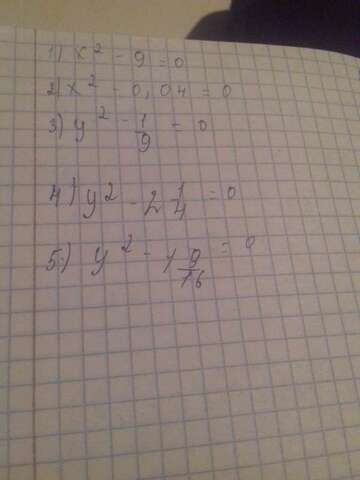 1) x² - 9 = 0
2) x² - 0,04 = 0
3) y² - 1/9 = 0
4) y² - 2 1/4 = 0
5) y² - 1 9/16 = 0